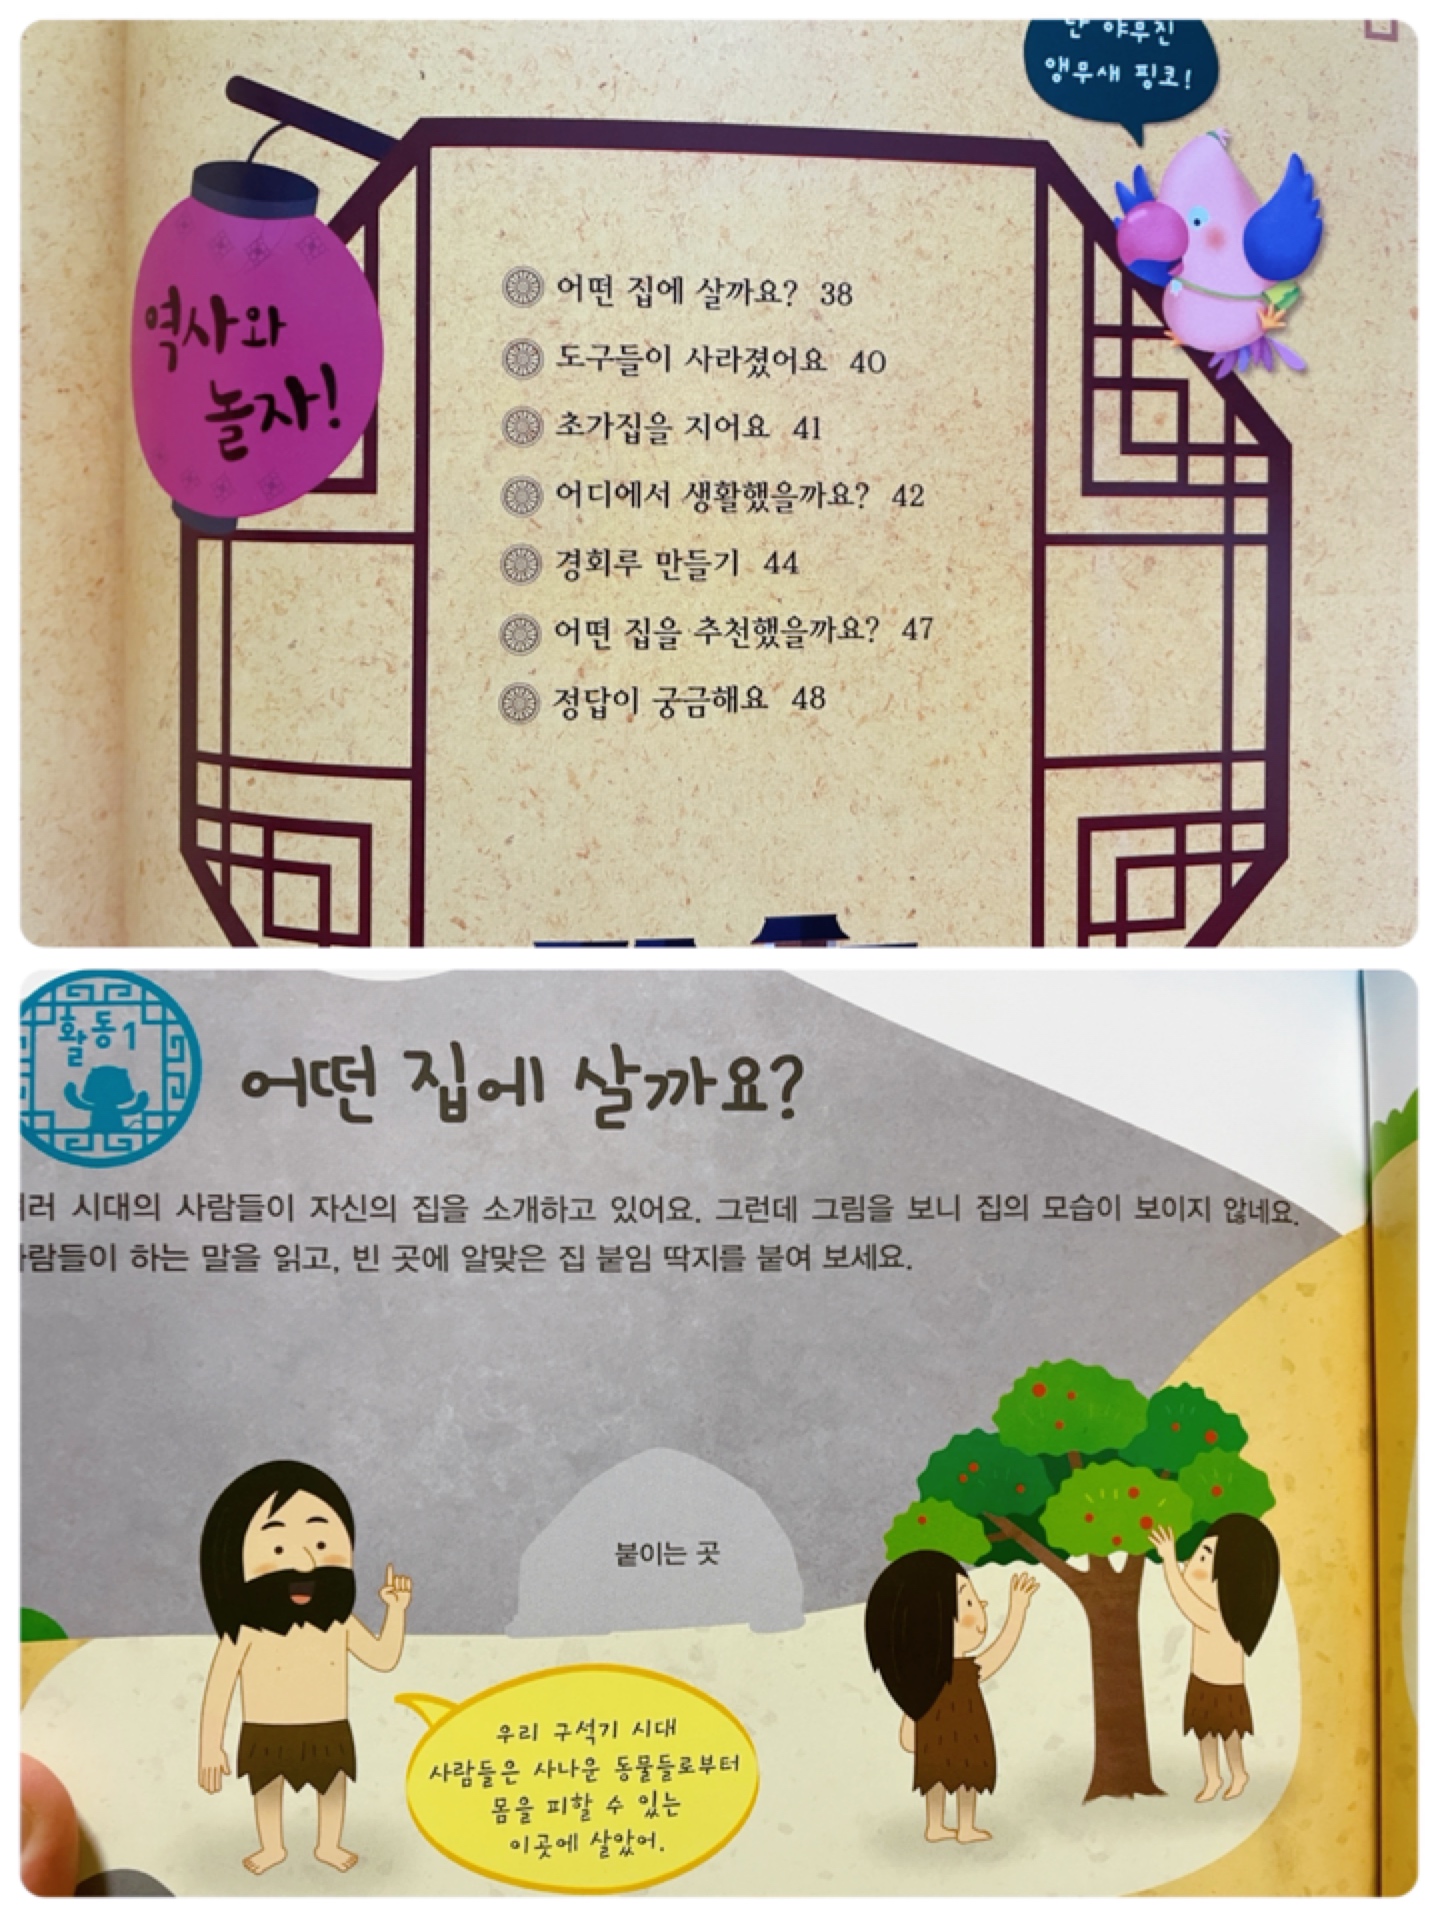 야무진
앵무새 핑코!
역사와
놀자!
어떤 집에 살까요? 38
도구들이 사라졌어요 40
초가집을 지어요 41
어디에서 생활했을까요? 42
경회루 만들기 44
어떤 집을 추천했을까요? 47
정답이 궁금해요 48
활동1
어떤 집에 살까요?
시대의 사람들이 자신의 집을 소개하고 있어요. 그런데 그림을 보니 집의 모습이 보이지 않네요.
하는 말을 읽고, 빈 곳에 알맞은 집 붙임 딱지를 붙여 보세요.
붙이는 곳
우리 구석기 시대
사람들은 사나운 동물들로부터
몸을 피할 수 있는
이곳에 살았어.